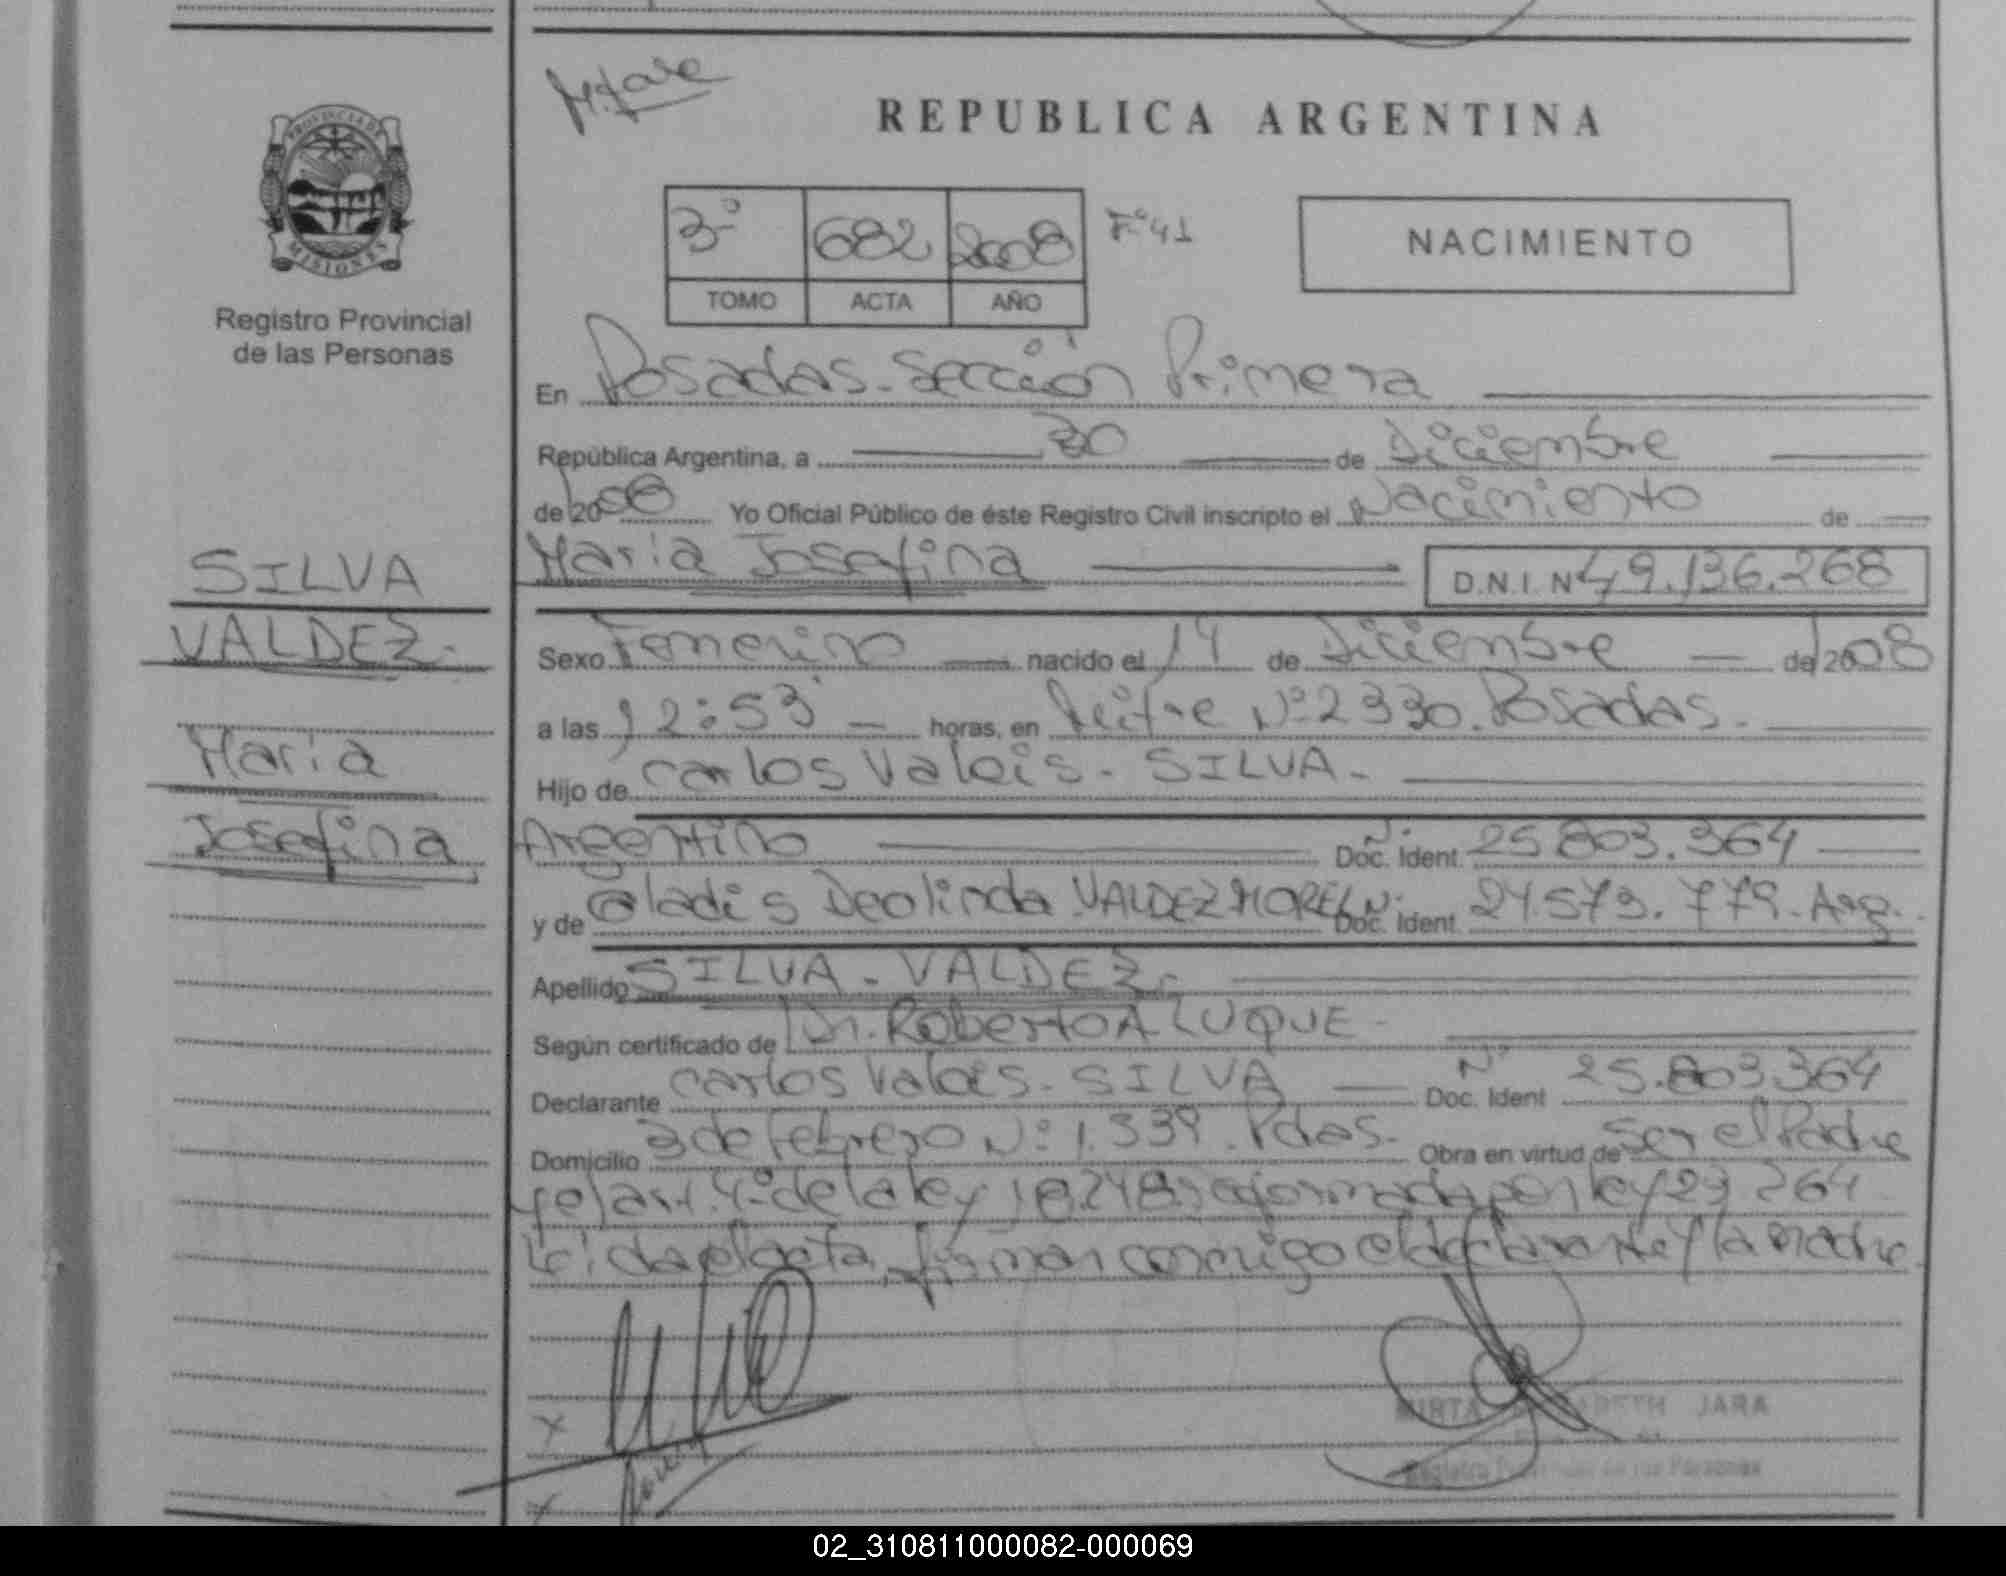 REPUBLICA ARGENTINA
PROVINCIA DE
MISIONES
Registro Provincial
de las Personas
3º 682 2008 Fº 41
TOMO ACTA AÑO
NACIMIENTO
En Posadas. Sección Primera
República Argentina, a 30 de Diciembre
de 2008 Yo Oficial Público de éste Registro Civil inscripto el Nacimiento de
María Josefina D.N.I. Nº 49.136.268
SILVA
VALDEZ.
María
Josefina
Sexo Femenino nacido el 14 de Diciembre de 2008
a las 12:53 horas, en Nº 2330. Posadas.
Hijo de Carlos Valois. SILVA.
Argentino Doc. Ident. Nº 25.803.364
y de Gladis Deolinda VALDEZ MOREL Nº Doc. Ident. 24.573.779. Arg.
Apellido SILVA. VALDEZ.
Según certificado de Dr. Roberto A LUQUE
Declarante Carlos Valois. SILVA Doc. Ident Nº 25.803.364
Domicilio 3 de Febrero Nº 1.339. Pdas. Obra en virtud de Ser el Padre
y el art. 4º de la ley 18.248 reformada por ley 23.264
Leída el acta, firman conmigo el declarante y la madre.
X
JARA
Registro Provincial de las Personas
X
02_310811000082-000069